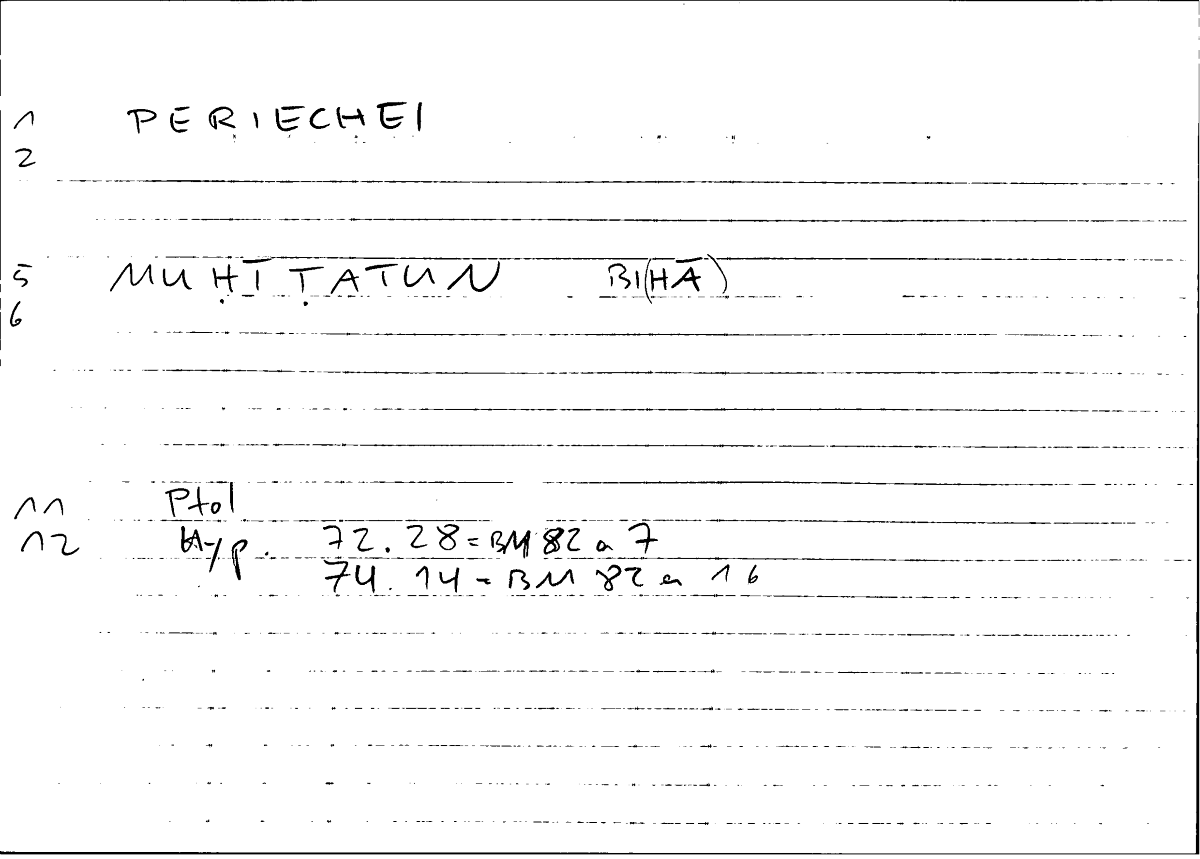 1 PERIECHEI
2
5 MUḤĪṬATUN BI(HĀ)
6
11 Ptol
12 Hyp. 72.28 = BM 82 a 7
74.14 = BM 82 a 16